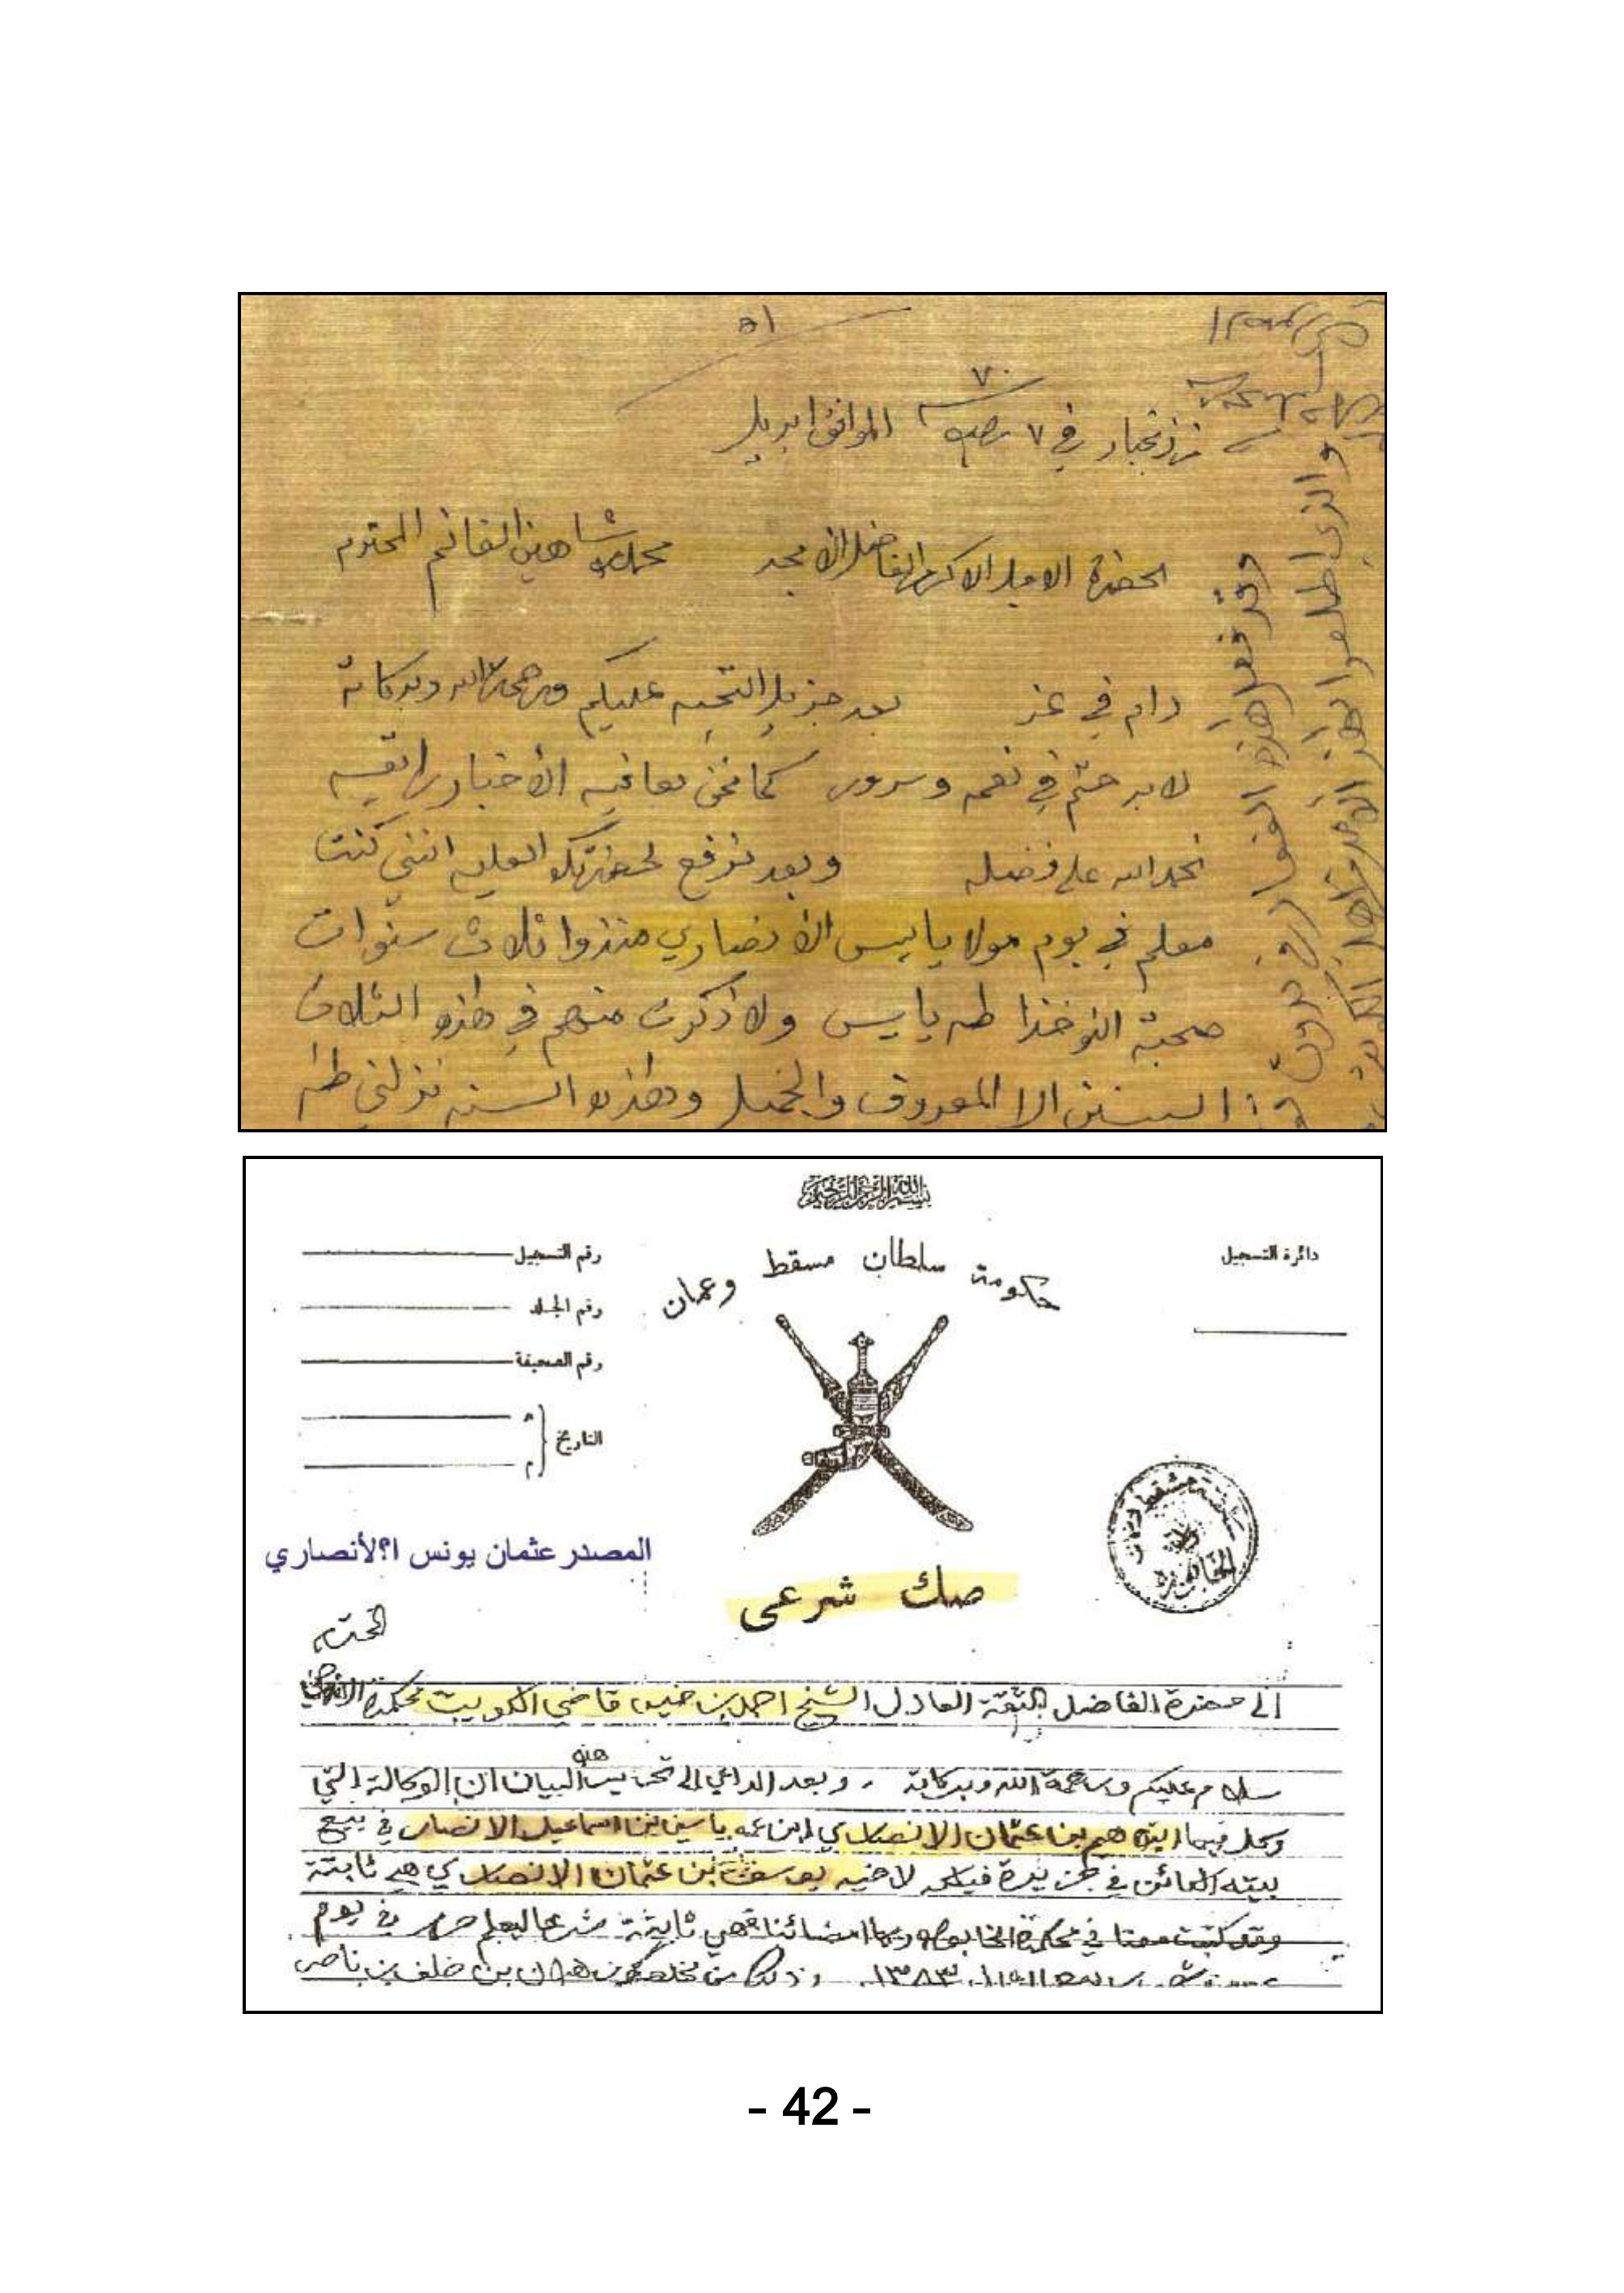 ٥١
٧٠
من زنجبار في ٧ رجب الموافق ابريل
لحضرة الاجل الاكرم الفاضل الامجد محمد شاهين الغانم المحترم
دام في عز بعد جزيل التحيه عليكم ورحمة الله وبركاته
لابد حتم في نعمه وسرور كما نحن بعافيه الأخبار
نحمد الله على فضله وبعد نرفع لحضرتكم العليه انني كنت
معلم في بوم مولا ياسين الأنصاري منذوا ثلاث سنوات
صحبة النوخذا طه ياسين ولا ذكرت منهم في هذه الثلاث
السنين الا المعروف والجميل وهذه السنه نزلني طه
وقد فعل هذه
والذي اطلعوا بهذا الأمر
بسم الله الرحمن الرحيم
دائرة التسجيل
حكومة سلطان مسقط وعمان
رقم التسجيل
رقم الجلد
رقم الصحيفة
التاريخ
هـ
م
المصدر عثمان يونس ا؟لأنصاري
صك شرعى
المحترم
إلى حضرة الفاضل الثقة العادل الشيخ احمد بن خميس قاضي الكويت محكمة
سلام عليكم ورحمة الله وبركاته . وبعد الداعي الى تحرير هذه البيان ان الوكالة التي
وكل فيها ابراهيم بن عثمان الانصاري ابن عمه ياسين بن اسماعيل الانصاري في بيع
بيته الكائن في جزيرة فيلكه لاخيه يوسف بن عثمان الانصاري هي ثابتة
وقد كتبت معنا في محكمة الخابورة وبها امضائنا فهي ثابتة شرعا ليعلم حرر في يوم
ربيع الاول ١٣٨٣ وذلك من بن هلال بن خلف بن ناصر
- 42 -